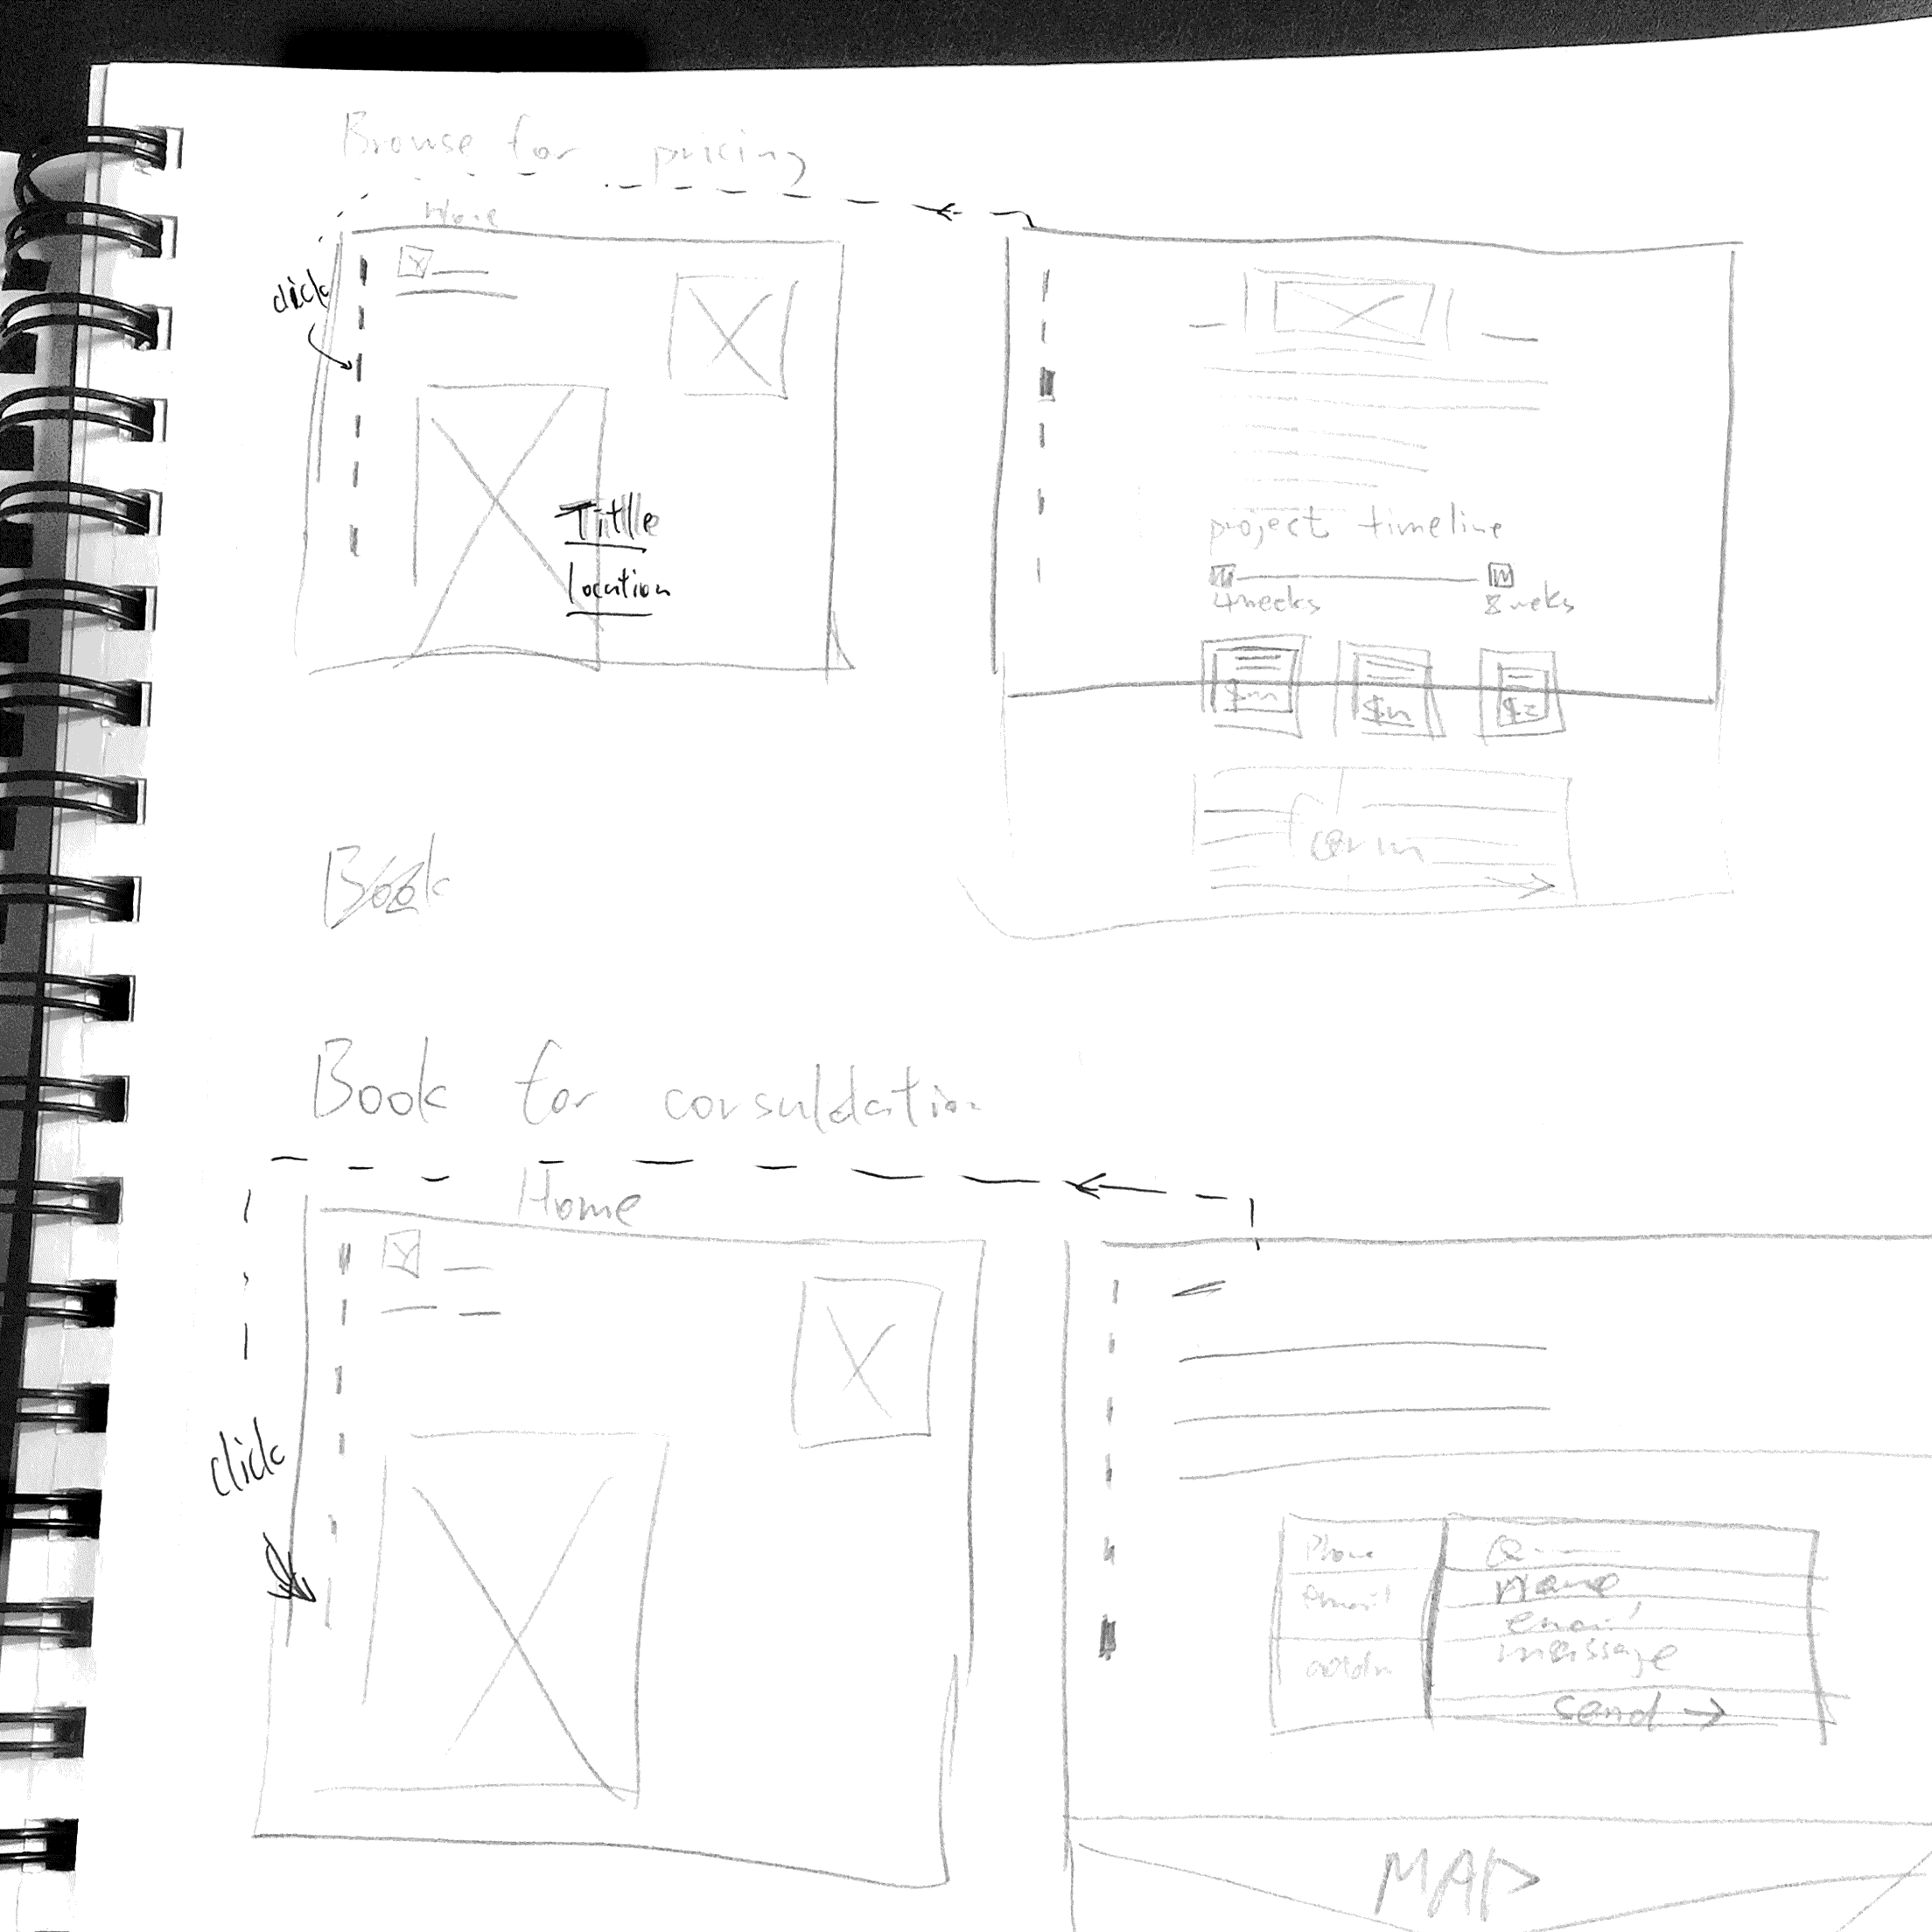 Browse for pricing
Home
click
Tittle
location
project timeline
4weeks
8 weeks
form
Book
Book for consuldation
Home
click
Phone
Name
email
message
send →
MAP